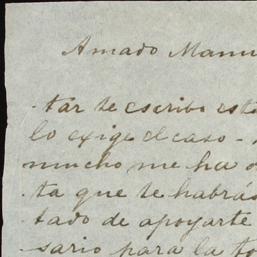 Amado Manu
tar te escribo est
lo exige el caso -
mucho me ha
ta que te habrás
tado de apoyarte
sario para la